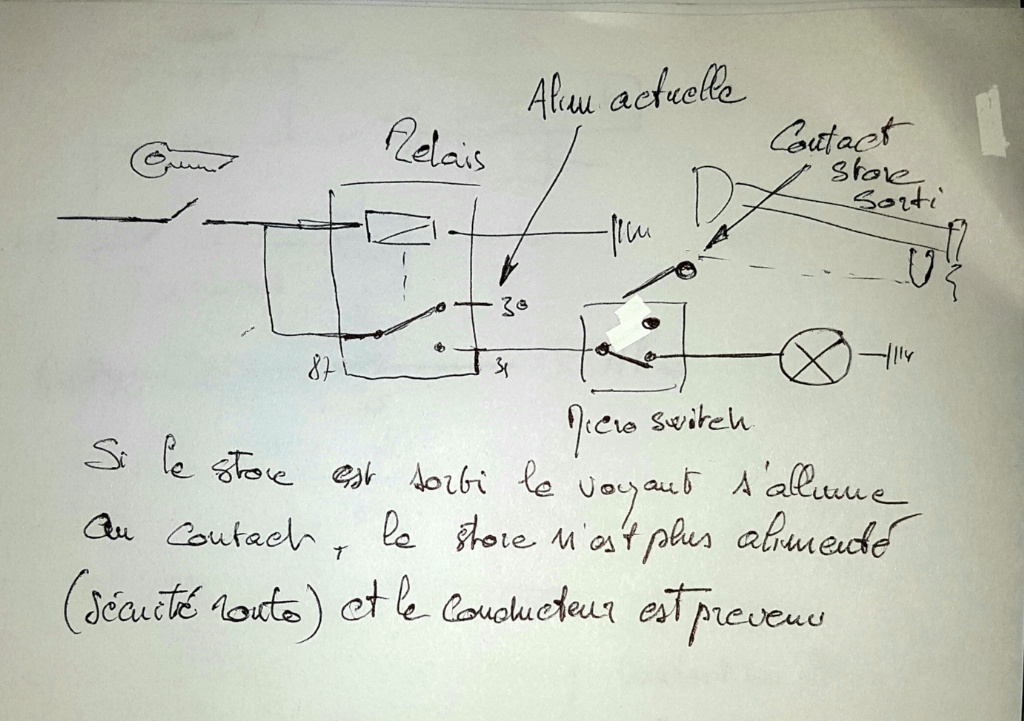 Alim. actuelle
Relais
Contact
store
sorti
30
87
31
Micro switch
Si le store est sorti le voyant s'allume
au contact, le store n'est plus alimenté
(sécuité route) et le conducteur est prevenu